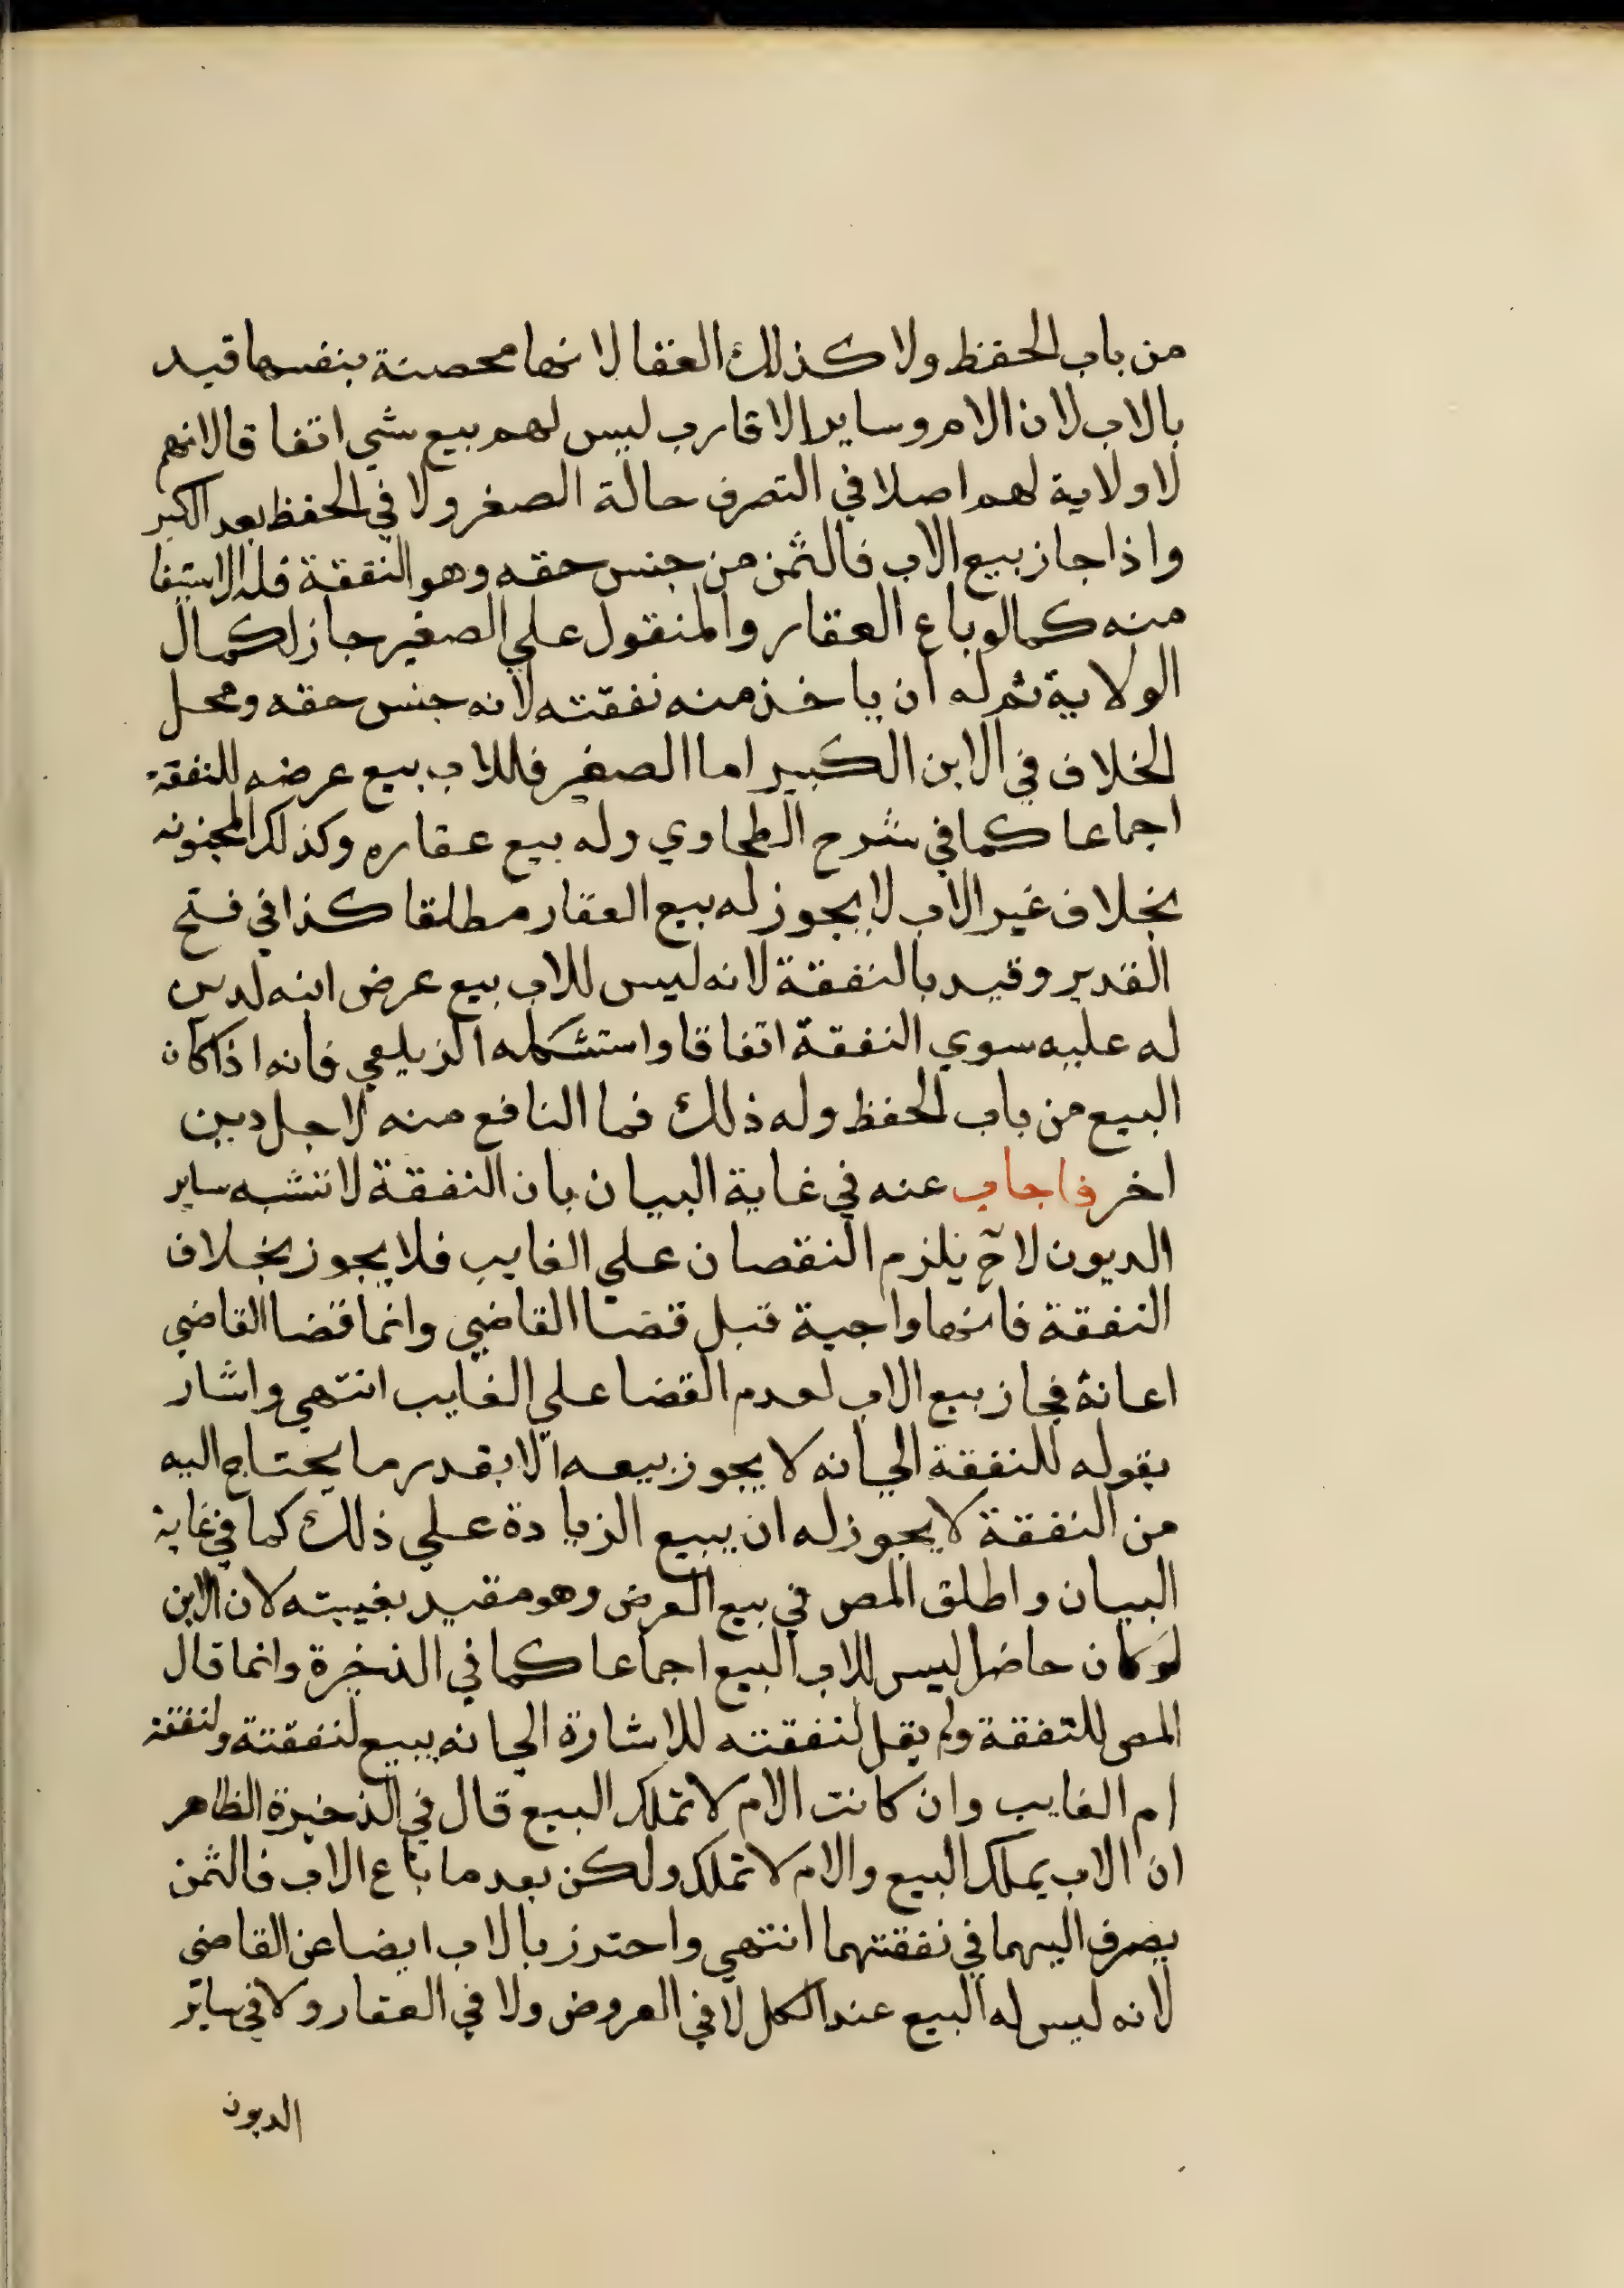 من باب الحفظ ولا كذلك العقا لانها محصنة بنفسها قيد
بالاب لان الام وساير الاقارب ليس لهم بيع شي اتفاقا لانهم
لا ولاية لهم اصلا في التصرف حالة الصغر ولا في الحفظ بعد الكبر
واذا جاز بيع الاب فالثمن من جنس حقه وهو النفقة فله الاستيفا
منه كما لو باع العقار والمنقول علي الصغير جاز لكمال
الولاية ثم له ان ياخذ منه نفقته لانه جنس حقه ومحل
الخلاف في الابن الكبير اما الصغير فللاب بيع عرضه للنفقة
اجماعا كما في شرح الطحاوي وله بيع عقاره وكذلك المجنون
بخلاف غير الاب لا يجوز له بيع العقار مطلقا كذا في فتح
القدير وقيد بالنفقة لانه ليس للاب بيع عرض ابنه لدين
له عليه سوي النفقة اتفاقا واستشكله الزيلعي فانه اذا كان
البيع من باب الحفظ وله ذلك فما النافع منه لاجل دين
اخر فاجاب عنه في غاية البيان بان النفقة لا تشبه ساير
الديون لا ح يلزم النقصان علي الغايب فلا يجوز بخلاف
النفقة فانها واجبة قبل قضا القاضي وانما قضا القاضي
اعانة فجاز بيع الاب لعدم القضا علي الغايب انتهي واشار
بقوله للنفقة الي انه لا يجوز بيعه الا بقدر ما يحتاج اليه
من النفقة لا يجوز له ان يبيع الزيادة علي ذلك كما في غاية
البيان واطلق المص في بيع العرض وهو مقيد بغيبته لان الابن
لو كان حاضرا ليس للاب البيع اجماعا كما في الذخيرة وانما قال
المص للنفقة ولم يقل لنفقته للاشارة الي انه يبيع لنفقتة ولنفقة
ام الغايب وان كانت الام لا تملك البيع قال في الذخيرة الظاهر
ان الاب يملك البيع والام لا تملك ولكن بعد ما باع الاب فالثمن
يصرف اليهما في نفقتهما انتهي واحترز بالاب ايضا عن القاضي
لانه ليس له البيع عند الكل لا في العروض ولا في العقار ولا في ساير
الديون